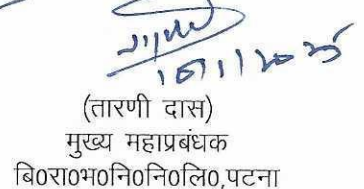 (तारणी दास)
मुख्य महाप्रबंधक
बि०रा०भ०नि०नि०लि०,पटना